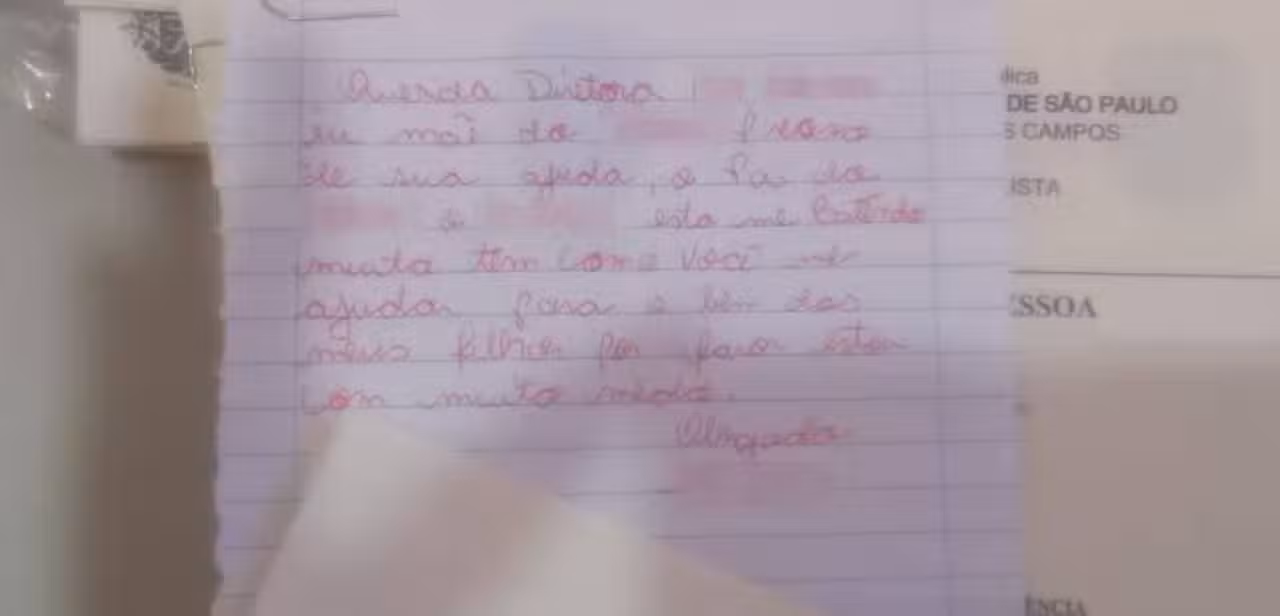 Querida Diretora
eu mãi do preciso
de sua ajuda, o Pai do
esta me batendo
muito tem como você me
ajudar para o bem dos
meus filhos por favor estou
com muito medo.
Obrigada
dica
DE SÃO PAULO
S CAMPOS
ISTA
ESSOA
ÊNCIA